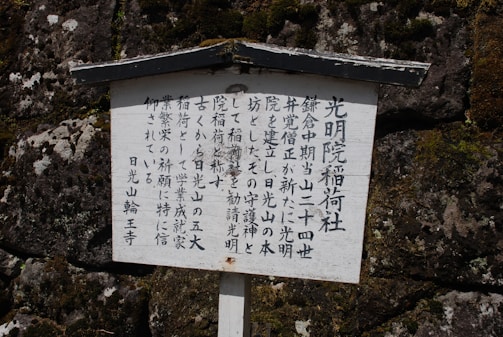 光明院稲荷社
鎌倉中期当山二十四世
弁覚僧正が新たに光明
院を建立し日光山の本
坊とした。その守護神と
して稲荷社を勧請光明
院稲荷と称す。
古くから日光山の五大
稲荷として学業成就家
業繁栄の祈願に特に信
仰されている
日光山輪王寺